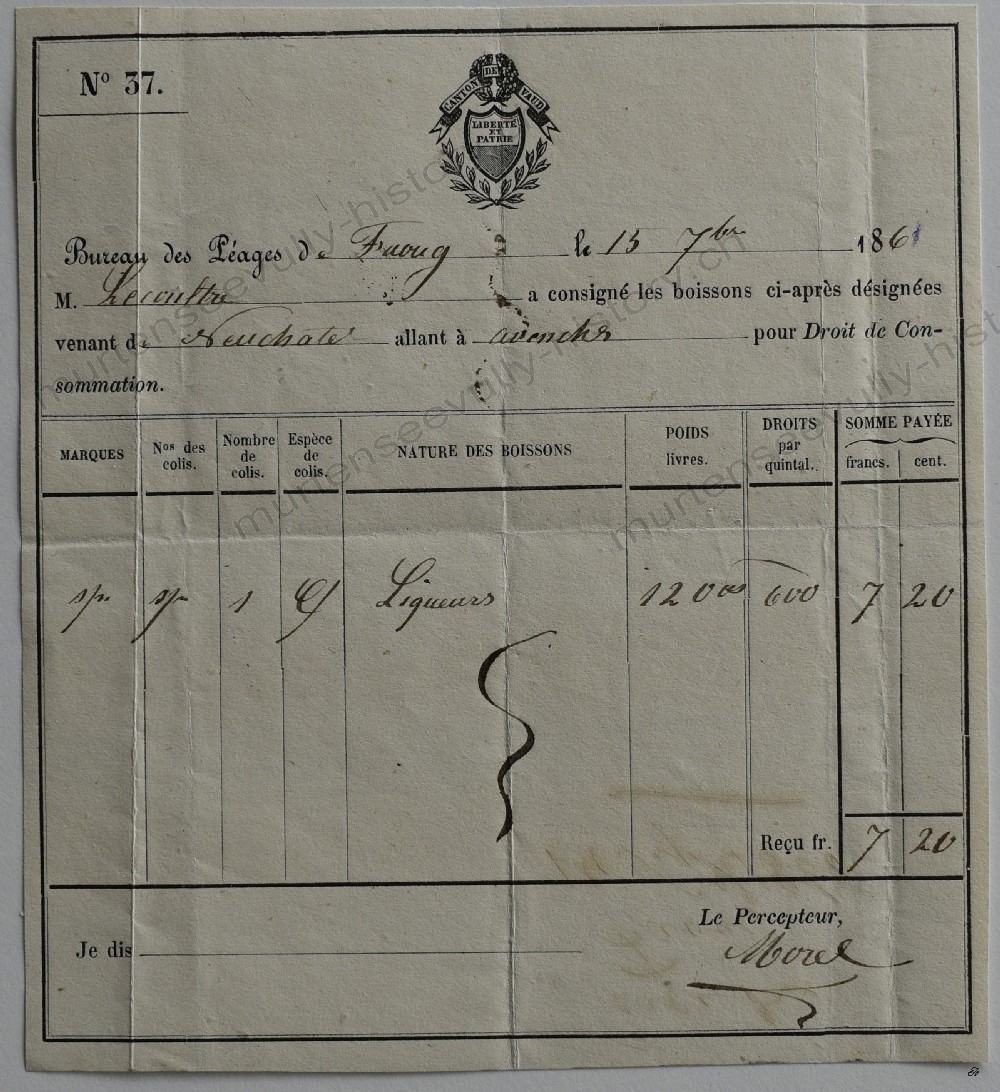 Nº 37.
CANTON DE VAUD
LIBERTÉ
ET
PATRIE
Bureau des Péages de Faoug le 15 7bre 1861
M. Lecoultre a consigné les boissons ci-après désignées
venant de Neuchatel allant à avenches pour Droit de Con-
sommation.
MARQUES Nos des colis. Nombre de colis. Espèce de colis. NATURE DES BOISSONS POIDS livres. DROITS par quintal. SOMME PAYÉE francs. cent.
1 Liqueurs 120 600 7 20
Reçu fr. 7 20
Le Percepteur,
Je dis
Morel
murtenseevully-history.ch
murtenseevully-history.ch
murtenseevully-history.ch